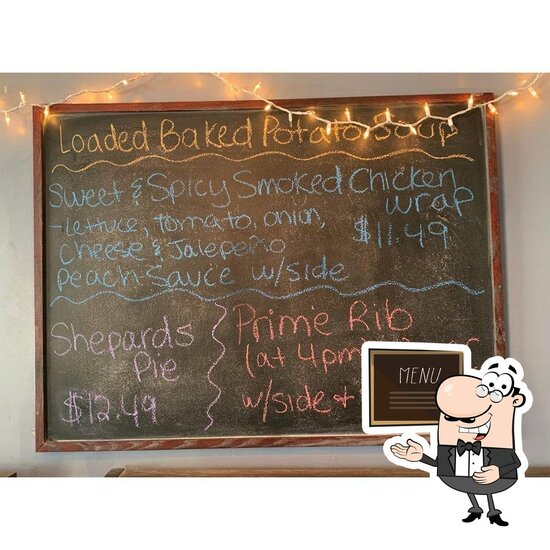 Loaded Baked Potato Soup
Sweet & Spicy Smoked Chicken
wrap
-lettuce, tomato, onion,
Cheese & Jalepeño
$11.49
peach sauce w/side
Shepards
Pie
$12.49
Prime Rib
(at 4pm)
w/side +
MENU